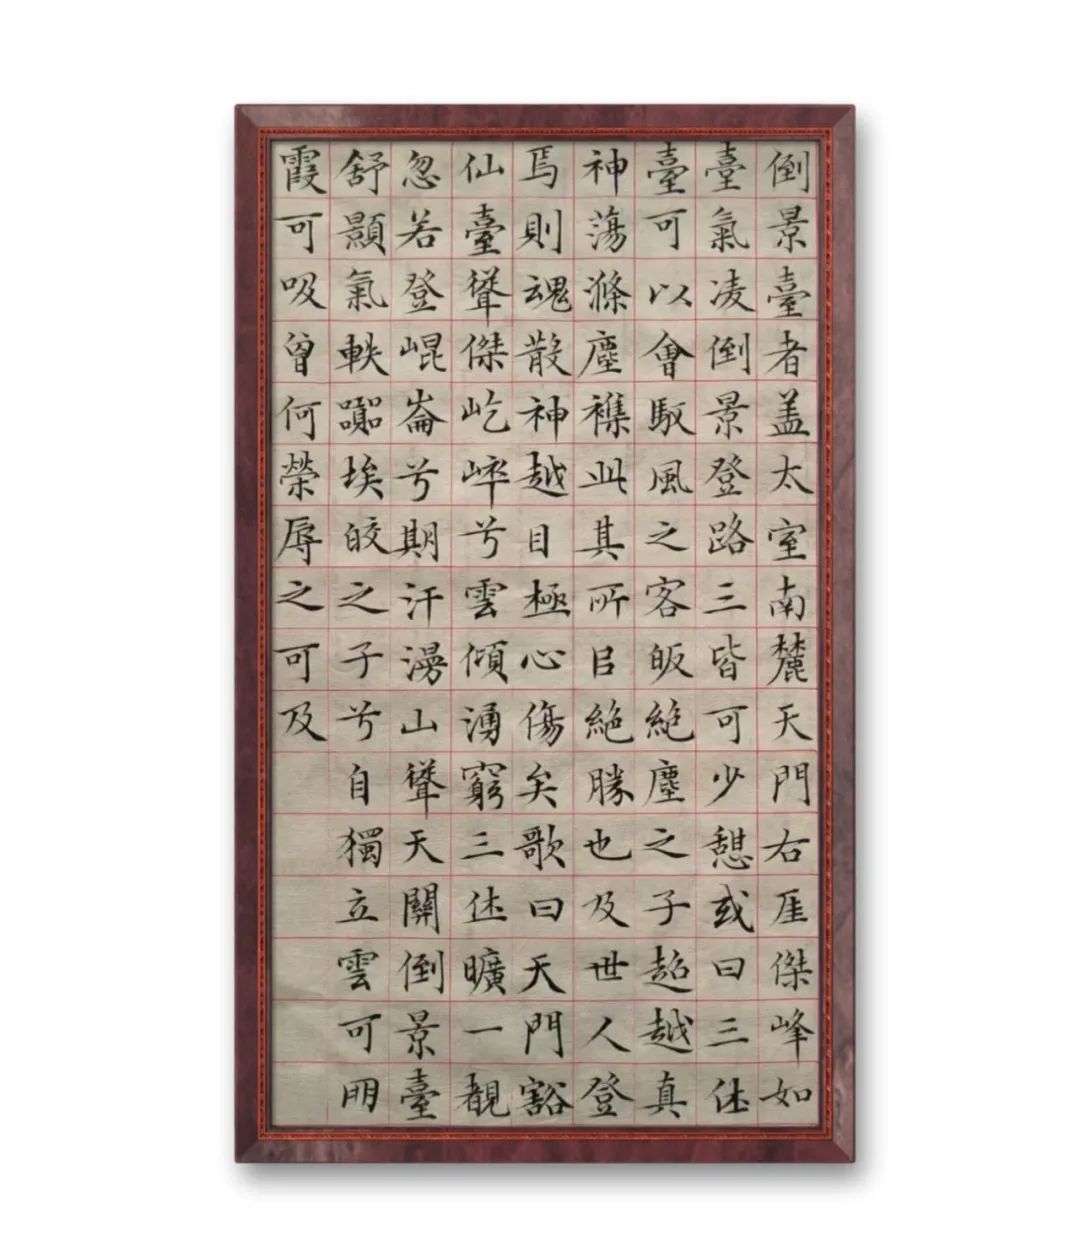 倒景臺者盖太室南麓天門右厓傑峰如
臺氣凌倒景登路三皆可少憩或曰三休
臺可以會馭風之客皈絶塵之子超越真
神蕩滌塵襍此其所㠯絶勝也及世人登
焉則魂散神越目極心傷矣歌曰天門豁
仙臺聳傑屹崪兮雲傾湧窮三休曠一覩
忽若登崐崙兮期汗漫山聳天關倒景臺
舒顥氣軼嚻埃皎之子兮自獨立雲可朋
霞可吸曾何榮辱之可及